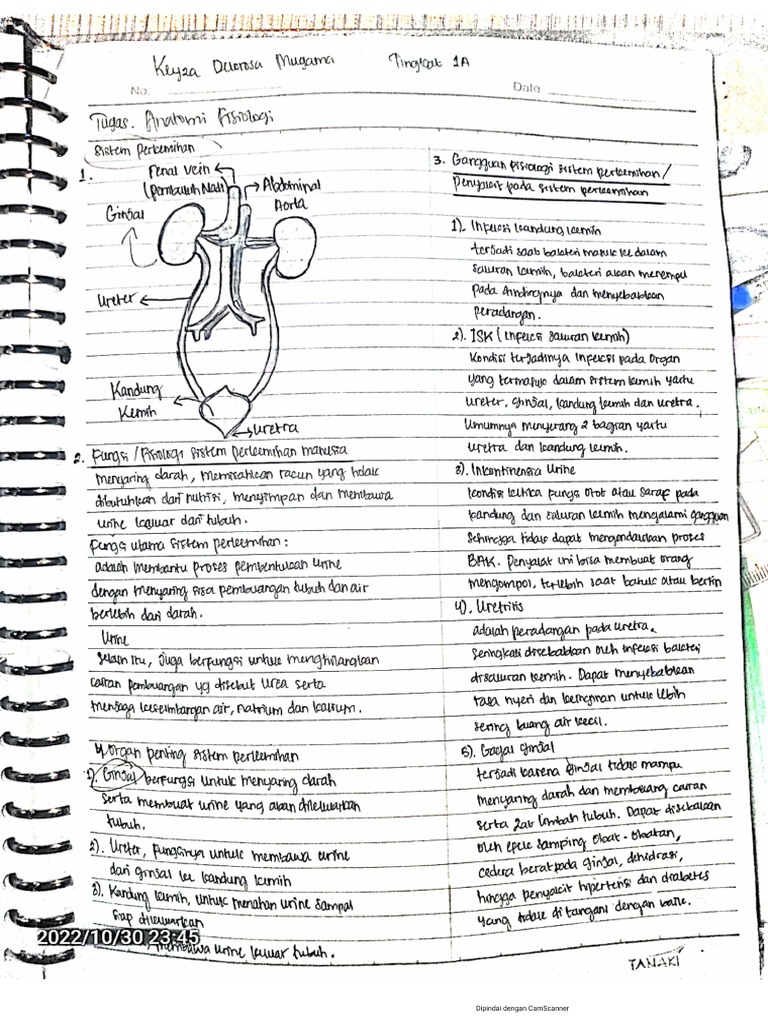 Keyza Delorosa Mugama Tingkat 1A
No.
Date
Tugas. Anatomi Fisiologi
Sistem Perkemihan
1.
Renal vein
(pembuluh Nadi)
Abdominal
Aorta
Ginjal
Ureter
Kandung
Kemih
Uretra
2. Fungsi / Fisiologi sistem perkemihan manusia
menyaring darah, memisahkan racun yang tidak
dibutuhkan dari nutrisi, menyimpan dan membawa
urine keluar dari tubuh.
Fungsi utama sistem perkemihan :
adalah membantu proses pembentukan urine
dengan menyaring sisa pembuangan tubuh dan air
berlebih dari darah.
Urine
selain itu, juga berfungsi untuk menghilangkan
cairan pembuangan yg disebut urea serta
menjaga keseimbangan air, natrium dan kalsium.
organ penting sistem perkemihan
1). Ginjal berfungsi untuk menyaring darah
serta membuat urine yang akan dikeluarkan
tubuh.
2). Ureter, fungsinya untuk membawa urine
dari ginjal ke kandung kemih
3). Kandung kemih, untuk menahan urine sampai
siap dikeluarkan
membawa urine keluar tubuh.
3. Gangguan fisiologi sistem perkemihan /
Penyakit pada sistem perkemihan
1). Infeksi kandung kemih
terjadi saat bakteri masuk ke dalam
saluran kemih, bakteri akan menempel
pada dindingnya dan menyebabkan
peradangan.
2). ISK (Infeksi saluran kemih)
Kondisi terjadinya infeksi pada organ
yang termasuk dalam sistem kemih yaitu
ureter, ginjal, kandung kemih dan uretra.
Umumnya menyerang 2 bagian yaitu
uretra dan kandung kemih.
3). Inkontinensia Urine
kondisi ketika fungsi otot atau saraf pada
kandung dan saluran kemih mengalami gangguan
sehingga tidak dapat mengendalikan proses
BAK. Penyakit ini bisa membuat orang
mengompol, terlebih saat batuk atau bersin
4). Uretritis
adalah peradangan pada uretra.
seringkali disebabkan oleh infeksi bakteri
disaluran kemih. Dapat menyebabkan
rasa nyeri dan keinginan untuk lebih
sering buang air kecil.
5). Gagal ginjal
terjadi karena ginjal tidak mampu
menyaring darah dan membuang cairan
serta zat limbah tubuh. Dapat disebabkan
oleh efek samping obat-obatan,
cedera berat pada ginjal, dehidrasi,
hingga penyakit hipertensi dan diabetes
yang tidak di tangani dengan baik.
2022/10/30 23:45
TANAKI
Dipindai dengan CamScanner